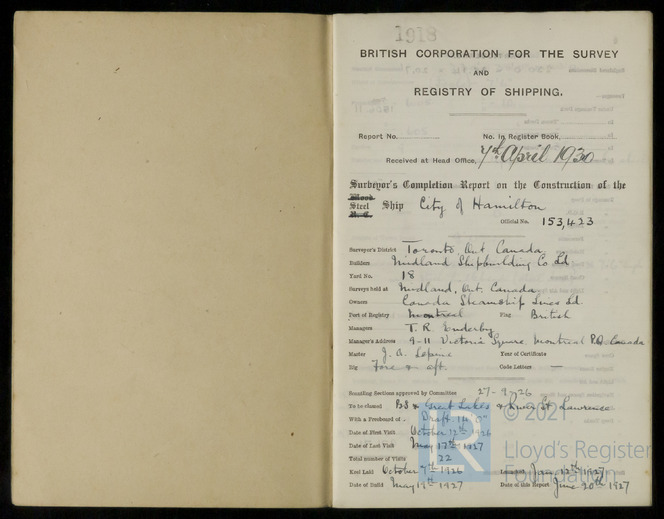 1918
BRITISH CORPORATION FOR THE SURVEY
AND
REGISTRY OF SHIPPING.
Report No. No. in Register Book
Received at Head Office, 7th April 1930
Surveyor's Completion Report on the Construction of the
Wood
Steel Ship City of Hamilton
Official No. 153,423
Surveyor's District Toronto, Ont Canada
Builders Midland Shipbuilding Co Ld
Yard No. 18
Surveys held at Midland, Ont. Canada
Owners Canada Steamship Lines Ld
Port of Registry Montreal Flag British
Managers T. R. Enderby
Manager's Address 9-11 Victoria Square, Montreal P.Q Canada
Master J. A. Lepine Year of Certificate
Rig Fore & aft. Code Letters —
Scantling Sections approved by Committee 27-9-26
To be classed BS * Great Lakes & River St Lawrence
With a Freeboard of Draft 14'0"
Date of First Visit October 12th 1926
Date of Last Visit May 17th 1927
Total number of Visits 22
Keel Laid October 7th 1926 Launched Jan. 12th 1927
Date of Build May 19th 1927 Date of this Report June 20th 1927
© 2021
Lloyd's Register
Foundation